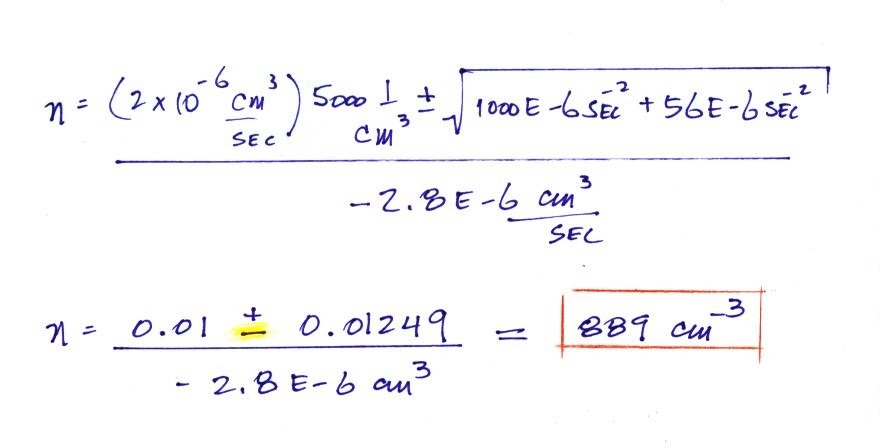 n = (2 x 10^-6 cm^3/SEC) 5000 1/cm^3 ± √(1000E-6 SEC^-2 + 56E-6 SEC^-2)
-2.8E-6 cm^3/SEC
n = 0.01 ± 0.01249 / -2.8E-6 cm^3 = 889 cm^-3